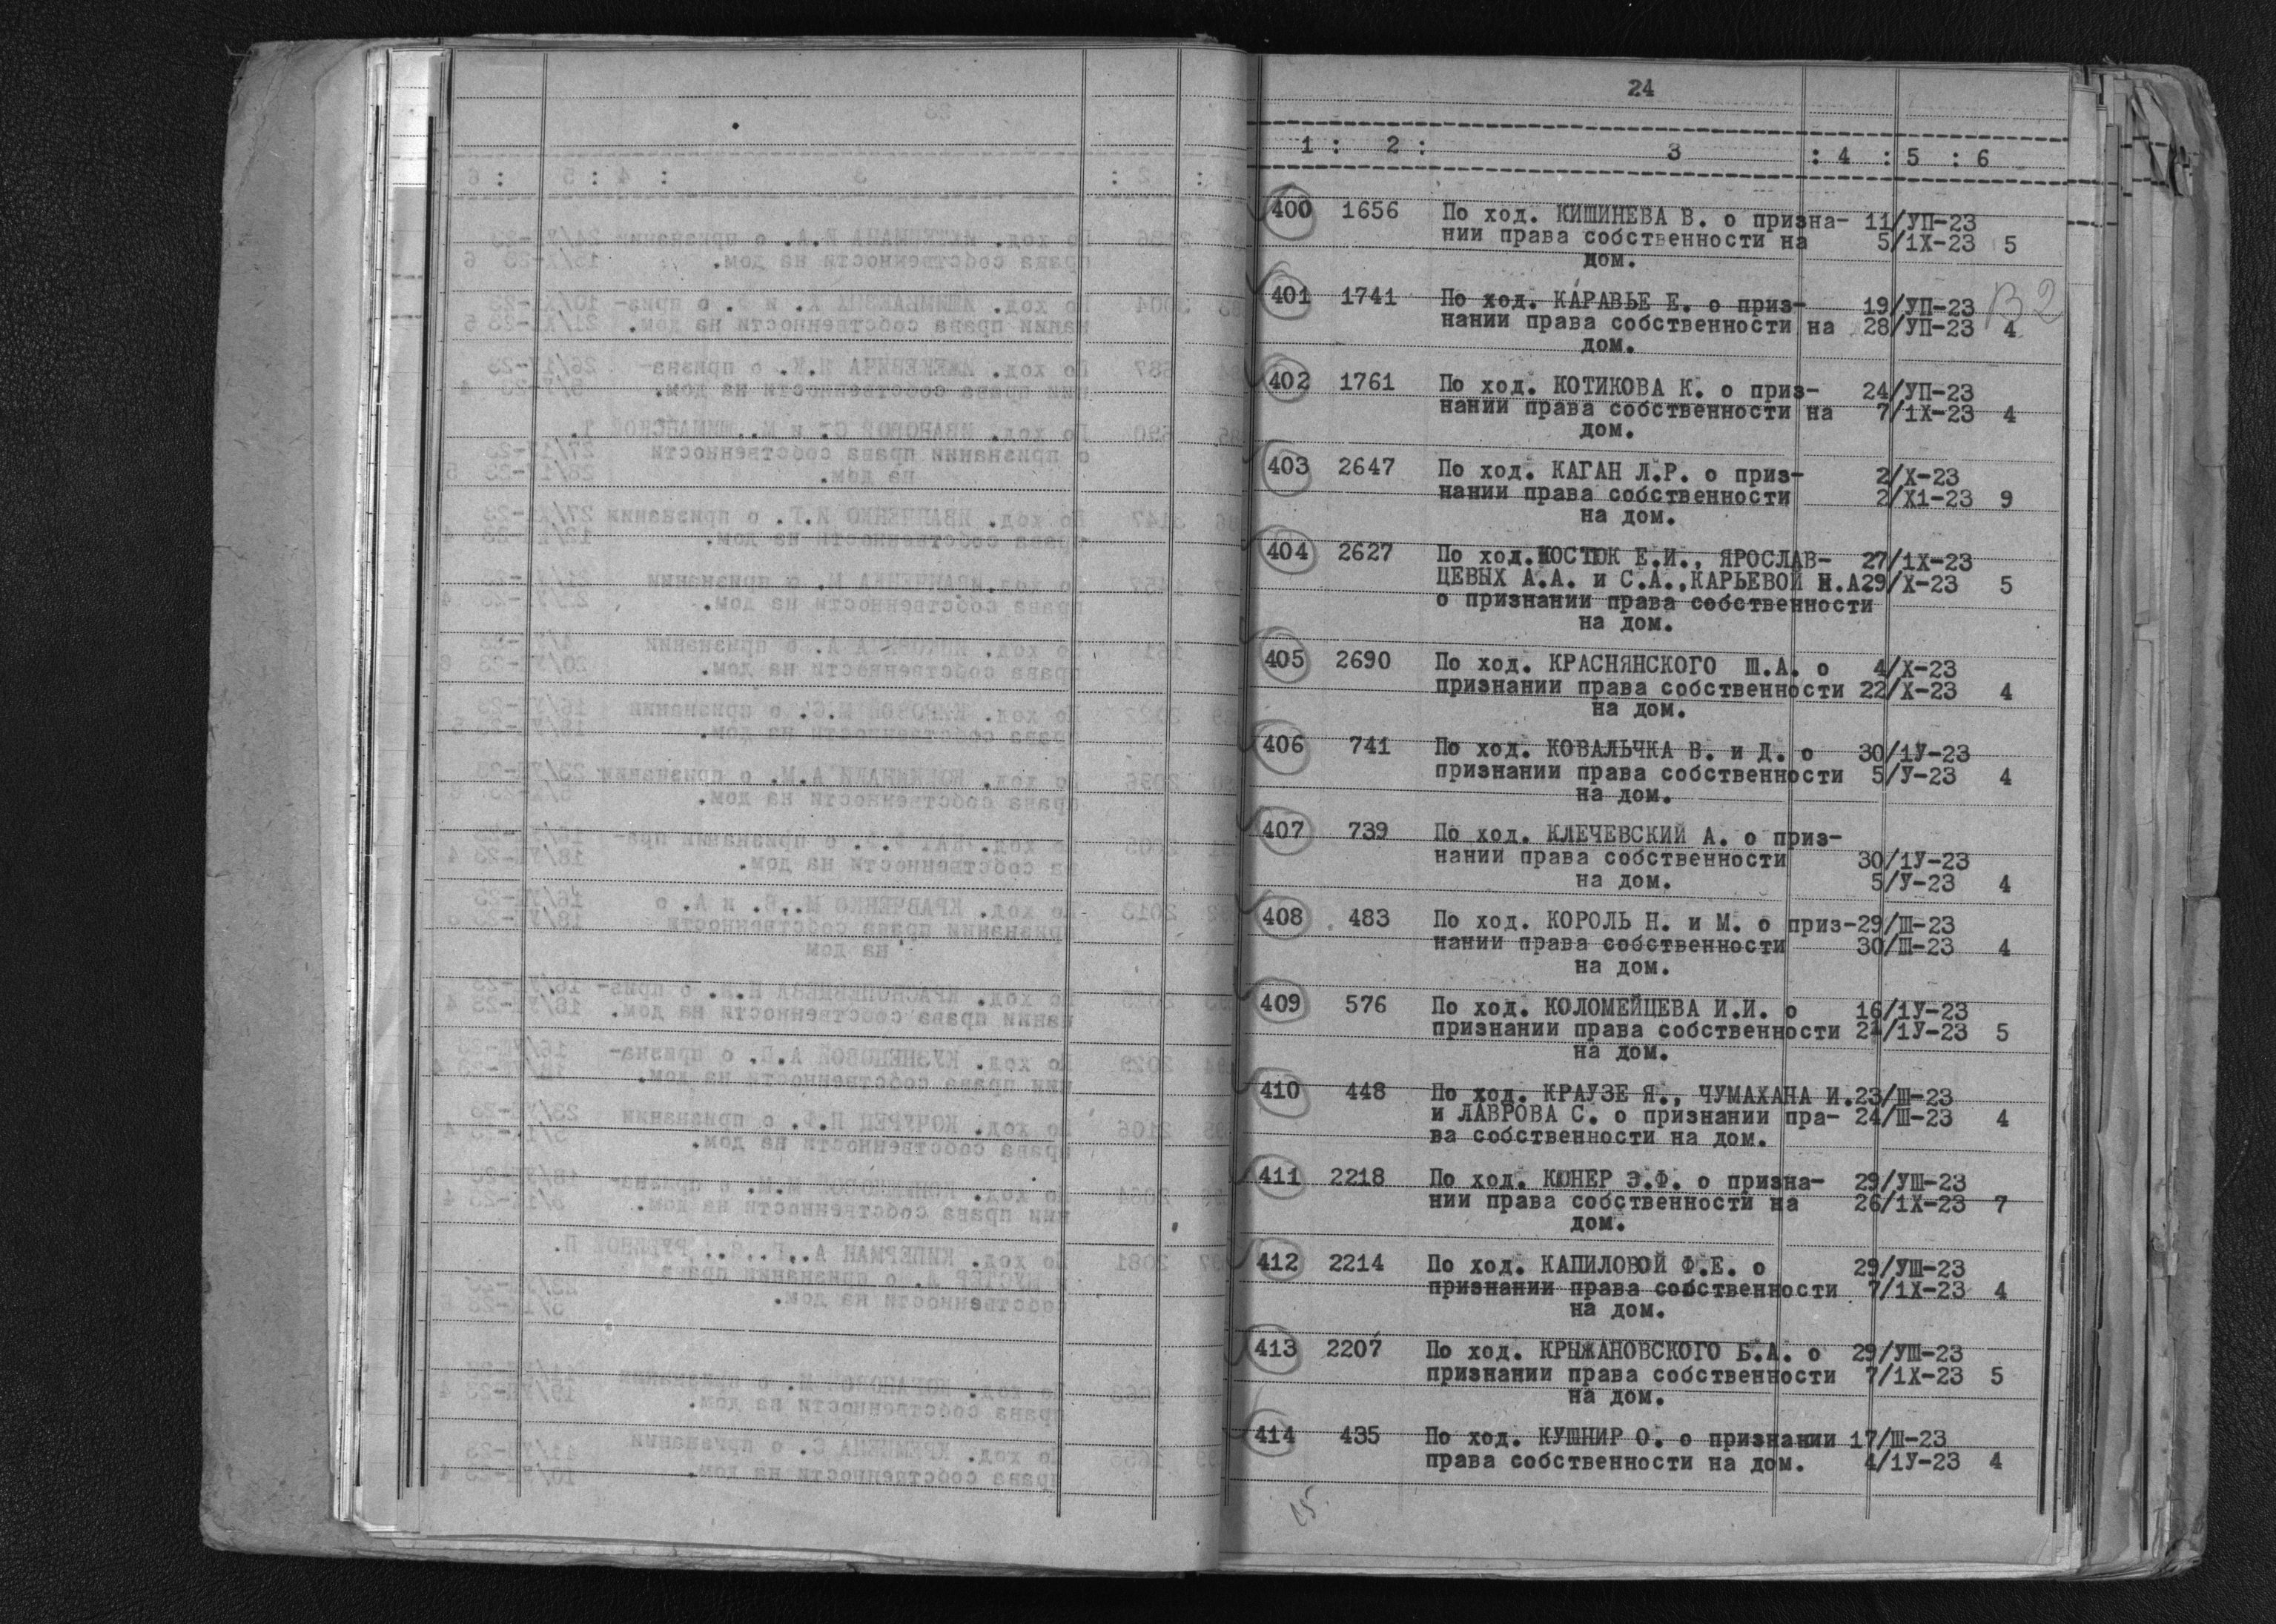 24
1 : 2 : 3 : 4 : 5 : 6
400 1656 По ход. КИШИНЕВА В. о призна- 11/УП-23
нии права собственности на 5/1Х-23 5
дом.
401 1741 По ход. КАРАВЬЕ Е. о приз- 19/УП-23 В2
нании права собственности на 28/УП-23 4
дом.
402 1761 По ход. КОТИКОВА К. о приз- 24/УП-23
нании права собственности на 7/1Х-23 4
дом.
403 2647 По ход. КАГАН Л.Р. о приз- 2/Х-23
нании права собственности 2/Х1-23 9
на дом.
404 2627 По ход. Е.И., ЯРОСЛАВ- 27/1Х-23
ЦЕВЫХ А.А. и С.А.,КАРЬЕВОЙ Н.А29/Х-23 5
о признании права собственности
на дом.
405 2690 По ход. КРАСНЯНСКОГО Ш.А. о 4/Х-23
признании права собственности 22/Х-23 4
на дом.
406 741 По ход. КОВАЛЬЧКА В. и Д. о 30/1У-23
признании права собственности 5/У-23 4
на дом.
407 739 По ход. КЛЕЧЕВСКИЙ А. о приз-
нании права собственности 30/1У-23
на дом. 5/У-23 4
408 483 По ход. КОРОЛЬ Н. и М. о приз-29/Ш-23
нании права собственности 30/Ш-23 4
на дом.
409 576 По ход. КОЛОМЕЙЦЕВА И.И. о 16/1У-23
признании права собственности 21/1У-23 5
на дом.
410 448 По ход. КРАУЗЕ Я., ЧУМАХАНА И.23/Ш-23
и ЛАВРОВА С. о признании пра- 24/Ш-23 4
ва собственности на дом.
411 2218 По ход. КЮНЕР Э.Ф. о призна- 29/УШ-23
нии права собственности на 26/1Х-23 7
дом.
412 2214 По ход. КАПИЛОВОЙ Ф.Е. о 29/УШ-23
признании права собственности 7/1Х-23 4
на дом.
413 2207 По ход. КРЫЖАНОВСКОГО Б.А. о 29/УШ-23
признании права собственности 7/1Х-23 5
на дом.
414 435 По ход. КУШНИР О. о признании 17/Ш-23
права собственности на дом. 4/1У-23 4